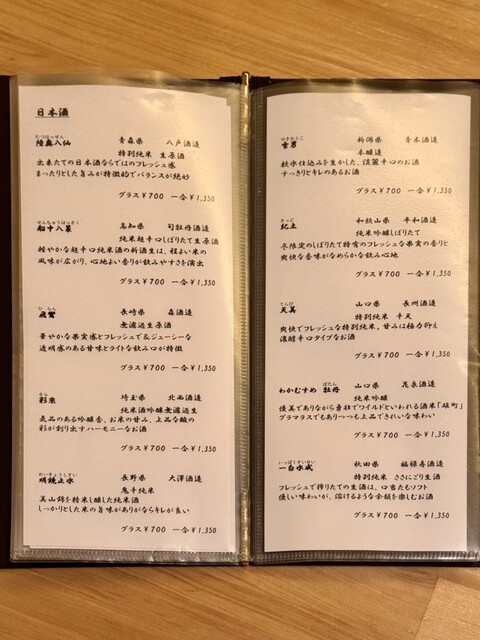 日本酒
むつはっせん
陸奥八仙 青森県 八戸酒造
特別純米 生原酒
出来たての日本酒ならではのフレッシュ感
まったりとした旨みが特徴的でバランスが絶妙
グラス¥700 一合¥1,350
せんちゅうはっさく
船中八策 高知県 司牡丹酒造
純米超辛口しぼりたて生原酒
軽やかな超辛口純米酒の新酒生は、程よい米の
風味が広がり、心地よい香りが飲みやすさを演出
グラス¥700 一合¥1,350
ひらん
飛鸞 長崎県 森酒造
無濾過生原酒
華やかな果実感とフレッシュで&ジューシーな
透明感のある甘味とライトな飲み口が特徴
グラス¥700 一合¥1,350
彩來 埼玉県 北西酒造
純米酒吟醸無濾過生
気品のある吟醸香、お米の甘み、上品な酸の
彩が創り出すハーモニーなお酒
グラス¥700 一合¥1,350
めいきょうしすい
明鏡止水 長野県 大澤酒造
鬼辛純米
美山錦を精米し醸した純米酒
しっかりとした米の旨味がありながらキレが良い
グラス¥700 一合¥1,350
ゆきおとこ
雪男 新潟県 青木酒造
本醸造
軟水仕込みを生かした、淡麗辛口のお酒
すっきりとキレのあるお酒
グラス¥700 一合¥1,350
きっど
紀土 和歌山県 平和酒造
純米吟醸しぼりたて
冬限定のしぼりたて特有のフレッシュな果実の香りと
爽快な香味がなめらかな飲み心地
グラス¥700 一合¥1,350
てんび
天美 山口県 長州酒造
特別純米 辛天
爽快でフレッシュな特別純米。甘みは極力抑え
濃醇辛口タイプなお酒
グラス¥700 一合¥1,350
ぼたん
わかむすめ 牡丹 山口県 新谷酒造
純米吟醸
優美でありながら勇壮でワイルドといわれる酒米「雄町」
グラマラスでもありつつも上品できれいな味わい
グラス¥700 一合¥1,350
いっぱくすいせい
一白水成 秋田県 福禄寿酒造
特別純米 ささにごり生酒
フレッシュで搾りたての生酒は、口当たもソフト
優しい味わいが、溶けるような余韻を楽しむお酒
グラス¥700 一合¥1,350